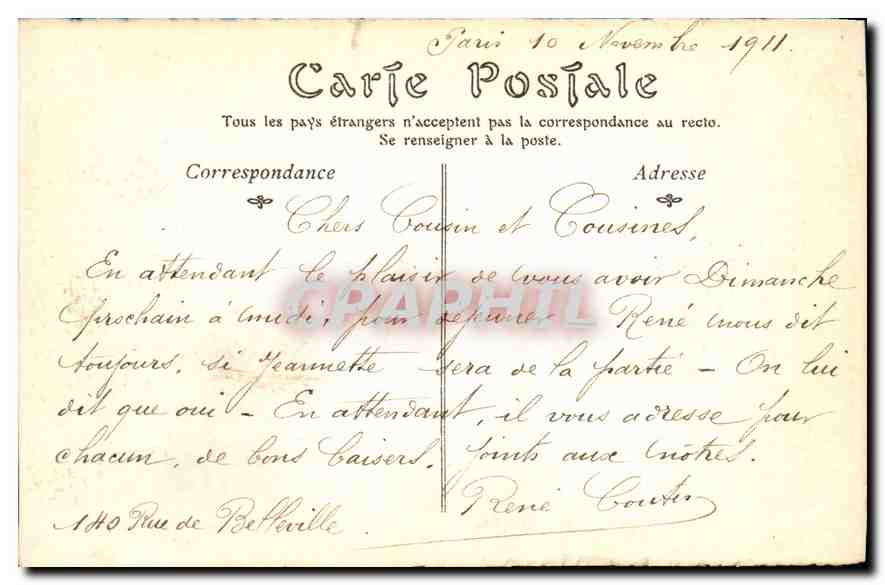 Paris 10 Novembre 1911.
Carte Postale
Tous les pays étrangers n'acceptent pas la correspondance au recto.
Se renseigner à la poste.
Correspondance
Adresse
Chers Cousin et Cousines,
En attendant le plaisir de vous avoir Dimanche
prochain à midi, pour déjeuner René nous dit
toujours, si Jeannette sera de la partie – On lui
dit que oui – En attendant, il vous adresse pour
chacun, de bons baisers, joints aux nôtres.
René
140 Rue de Belleville.
CPAPHIL